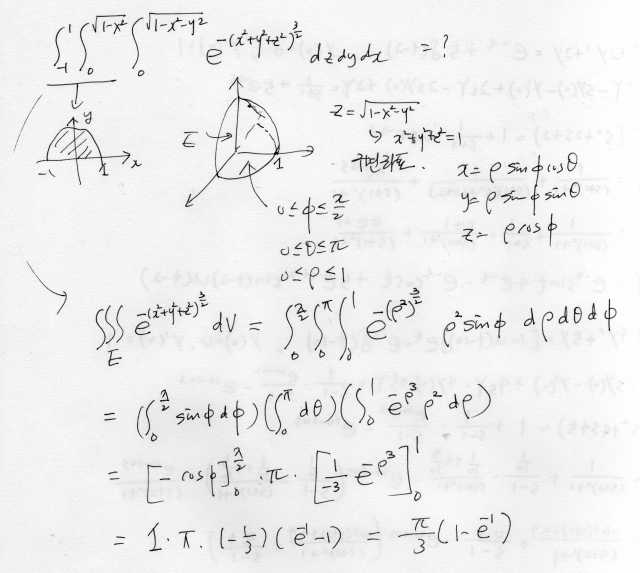 ∫_{-1}^{1} ∫_{0}^{√(1-x²)} ∫_{0}^{√(1-x²-y²)} e^{-(x²+y²+z²)^{3/2}} dz dy dx = ?
y
x
-1 1
E
1
z = √(1-x²-y²)
↳ x²+y²+z²=1
구면좌표.
x = ρ sinφ cosθ
y = ρ sinφ sinθ
z = ρ cosφ
0 ≤ φ ≤ π/2
0 ≤ θ ≤ π
0 ≤ ρ ≤ 1
∭_E e^{-(x²+y²+z²)^{3/2}} dV = ∫_{0}^{π/2} ∫_{0}^{π} ∫_{0}^{1} e^{-(ρ²)^{3/2}} ρ² sinφ dρ dθ dφ
= (∫_{0}^{π/2} sinφ dφ) (∫_{0}^{π} dθ) (∫_{0}^{1} e^{-ρ³} ρ² dρ)
= [-cosφ]_{0}^{π/2} · π · [1/-3 e^{-ρ³}]_{0}^{1}
= 1 · π · (-1/3) (e^{-1} -1) = π/3 (1-e^{-1})